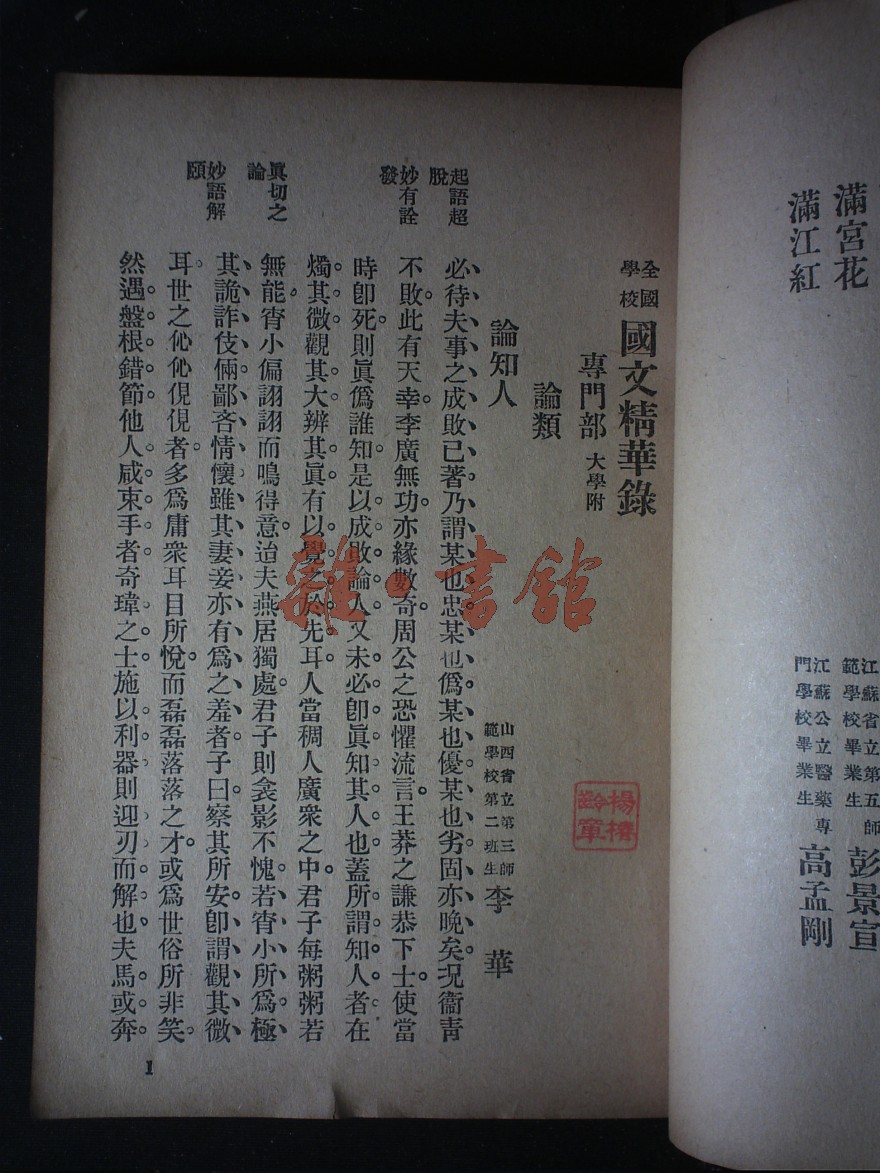 滿宮花
滿江紅
江蘇省立第五師
範學校畢業生
彭景宣
江蘇公立醫藥專
門學校畢業生
高孟剛
全國
學校
國文精華錄
專門部 大學附
論類
論知人
山西省立第三師
範學校第二班生
李華
起語超
脫
必待夫事之成敗已著乃謂某也忠某也僞某也優某也劣固亦晚矣況衞青
妙有詮
發
不敗此有天幸李廣無功亦緣數奇周公之恐懼流言王莽之謙恭下士使當
時卽死則眞僞誰知是以成敗論人又未必卽眞知其人也蓋所謂知人者在
燭其微觀其大辨其眞有以覺之於先耳人當稠人廣衆之中君子每粥粥若
眞切之
論
無能宵小偏詡詡而鳴得意迨夫燕居獨處君子則衾影不愧若宵小所爲極
妙語解
頤
其詭詐伎倆鄙吝情懷雖其妻妾亦有爲之羞者子曰察其所安卽謂觀其微
耳世之伈伈俔俔者多爲庸衆耳目所悅而磊磊落落之才或爲世俗所非笑
然遇盤根錯節他人咸束手者奇瑋之士施以利器則迎刃而解也夫馬或奔
1
雜·書館